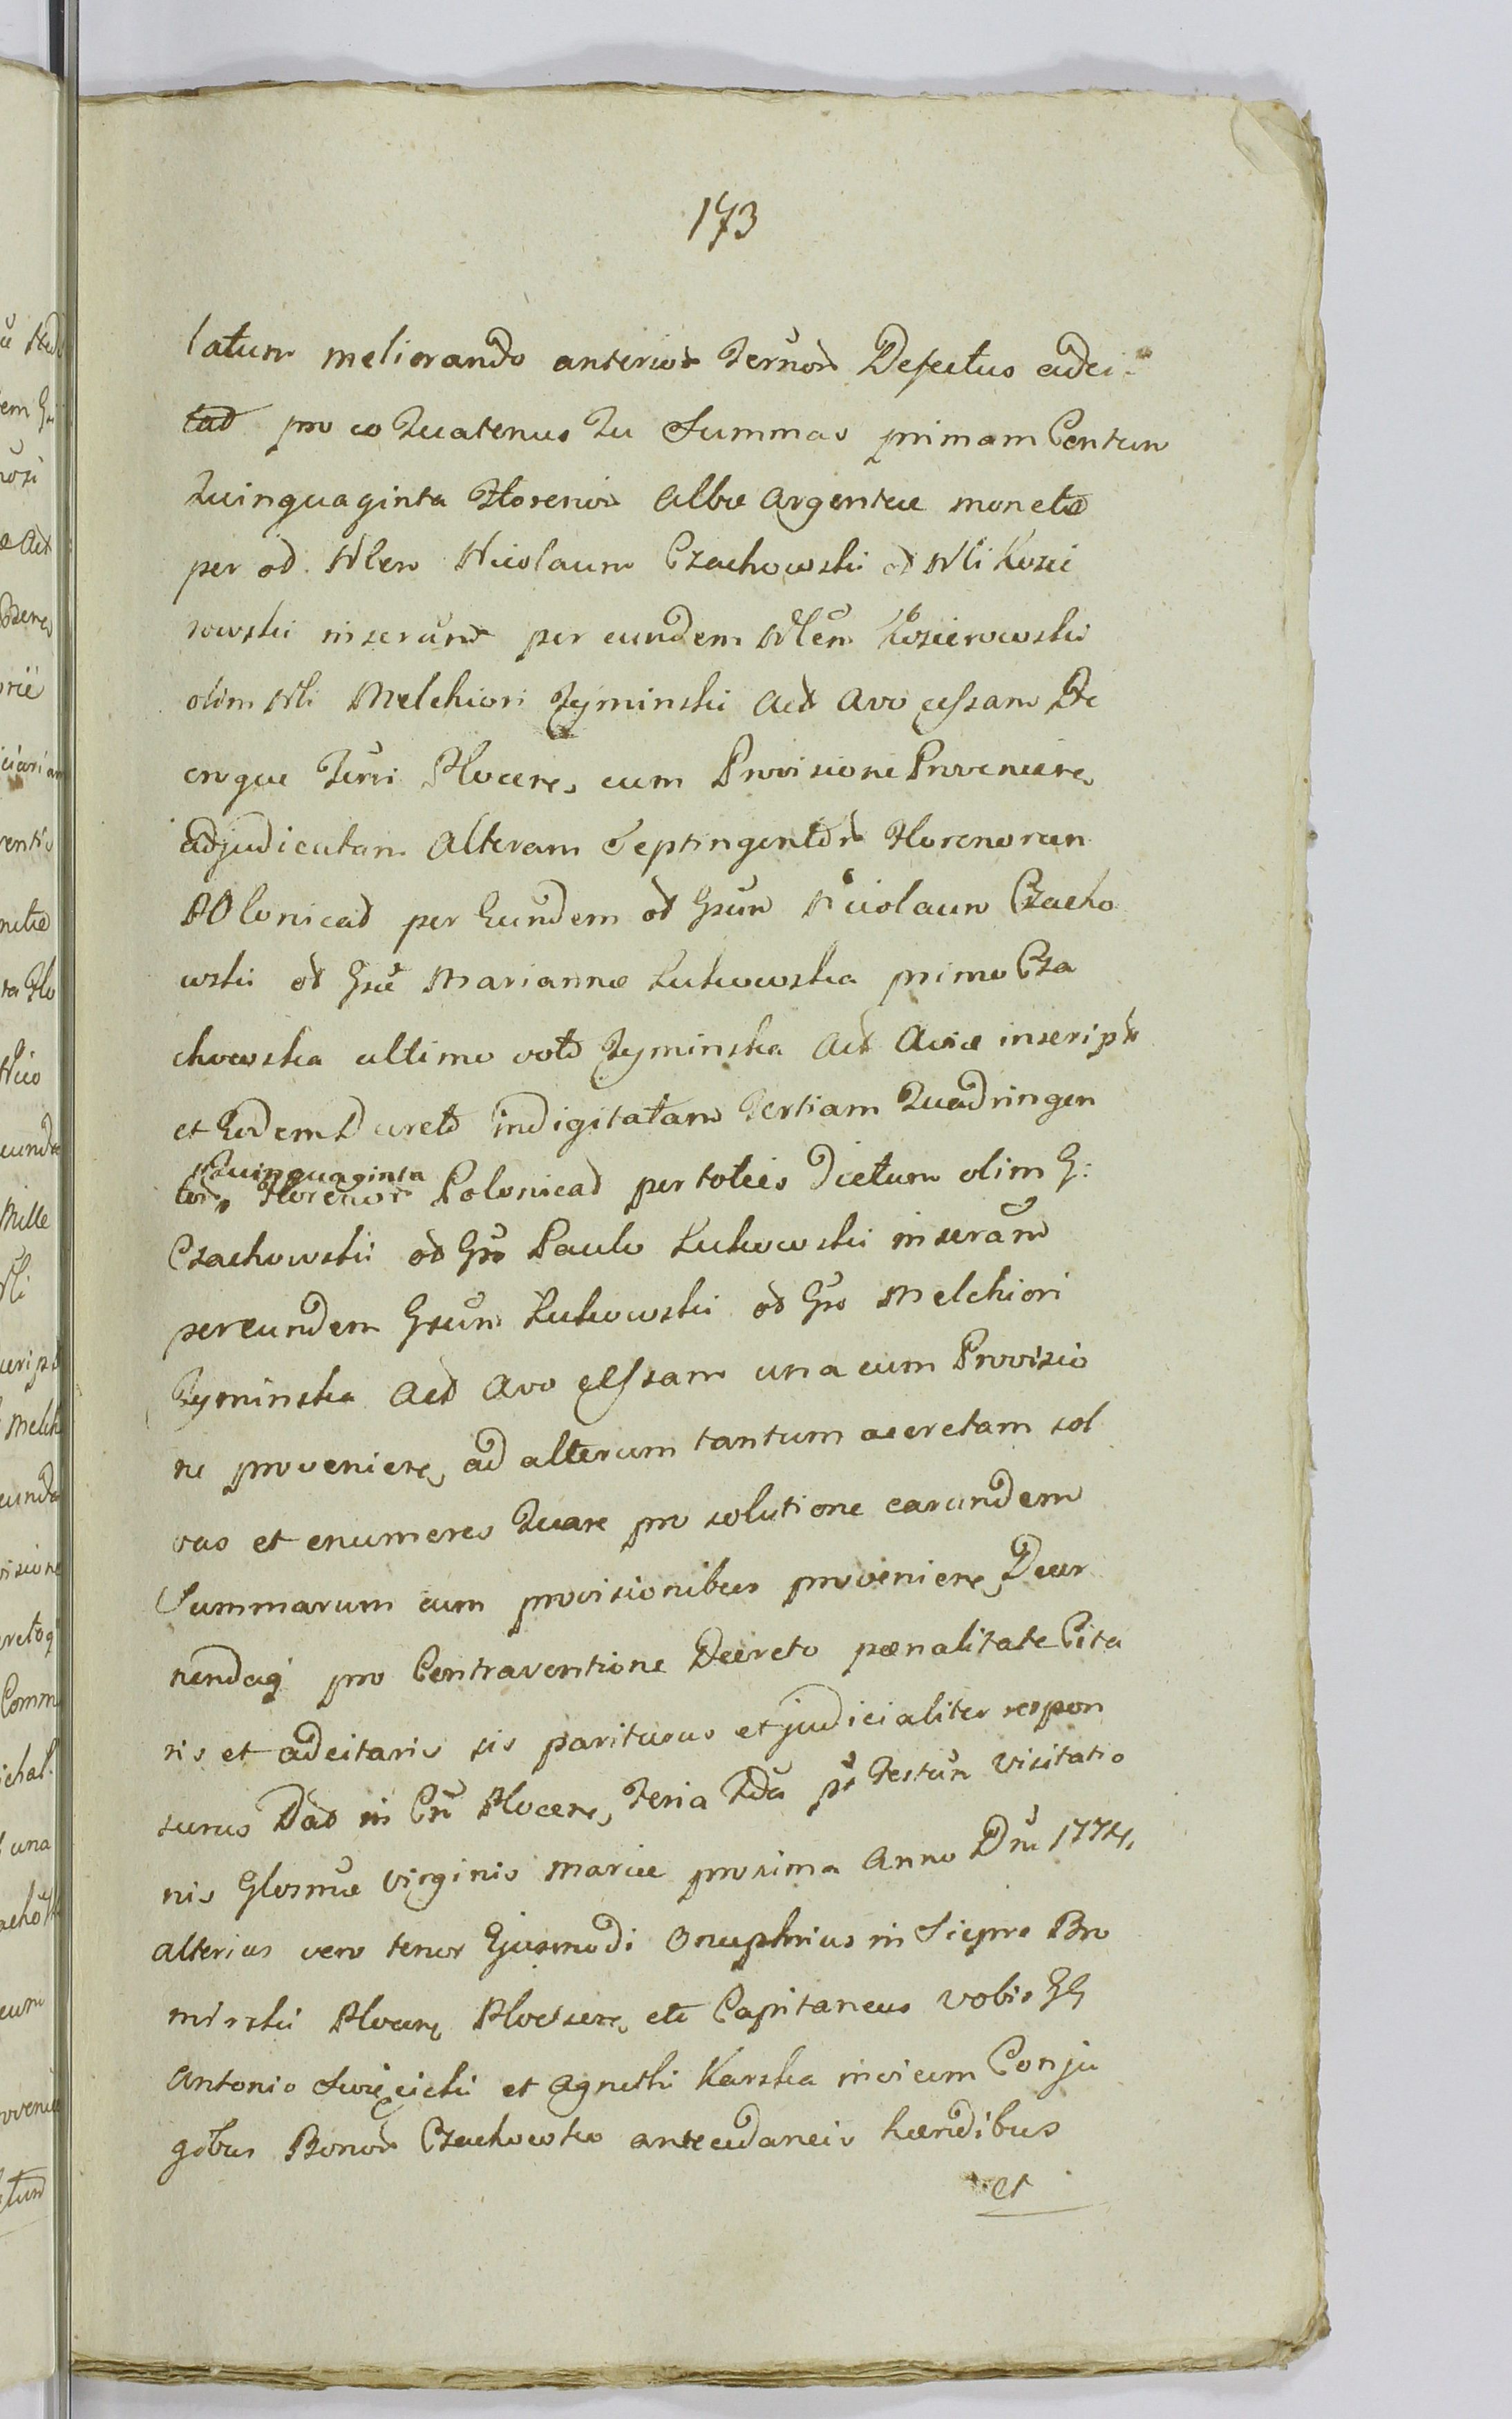 173
latum meliorando anterior Termor Defectus adci
tad pro eo Quatenus Tu Summas primam Centum
Quinquaginta Florenor Albae Argenteae monetae
per od Nlem Nicolaum Czachowski od Nli Kozie
rowski inserum per eundem Nlem Kozierowski
olim Nli Melchiori Zyminski Act Avo cessam De
croque Terri Plocen cum Provisione Provenien
adjudicatam Alteram Septingentor Florenorum
Polonicad per Eundem od Gsum Nicolaum Czacho
wski od Gsae Mariannae Lukowska primo Cza
chowska ultimo voto Zyminska Act Aviae inscript
et Eodem Decreto indigitatam Tertiam Quadringen
tor Quinquaginta Florenor Polonicad per toties Dictum olim G:
Czachowski od Gso Paulo Lukowski inseram
per eundem Gsum Lukowski od Gso Melchiori
Zyminska Act Avo cessam una cum Provisio
ne provenien ad alterum tantum accretam sol
vas et enumeres Quare pro solutione earundem
Summarum cum provisionibus provenien Decer
nendaq pro Contraventione Decreto poenalitate Cita
ris et adcitaris sis pariturus et judicialiter respon
surus Dad in Crii Plocen, Feria 2da pt Festum Visitatio
nis Glosmae Virginis Mariae proxima Anno Dni 1774.
alterius vero tenor Ejusmodi Onuphrius in Siepre Bro
mirski Plocen Plocscen etc Capitaneus vobis GG
Antonio Święcicki et Agnethi Karska invicem Conju
gibus Bonor Czachowko antecedaneis haeredibus
et